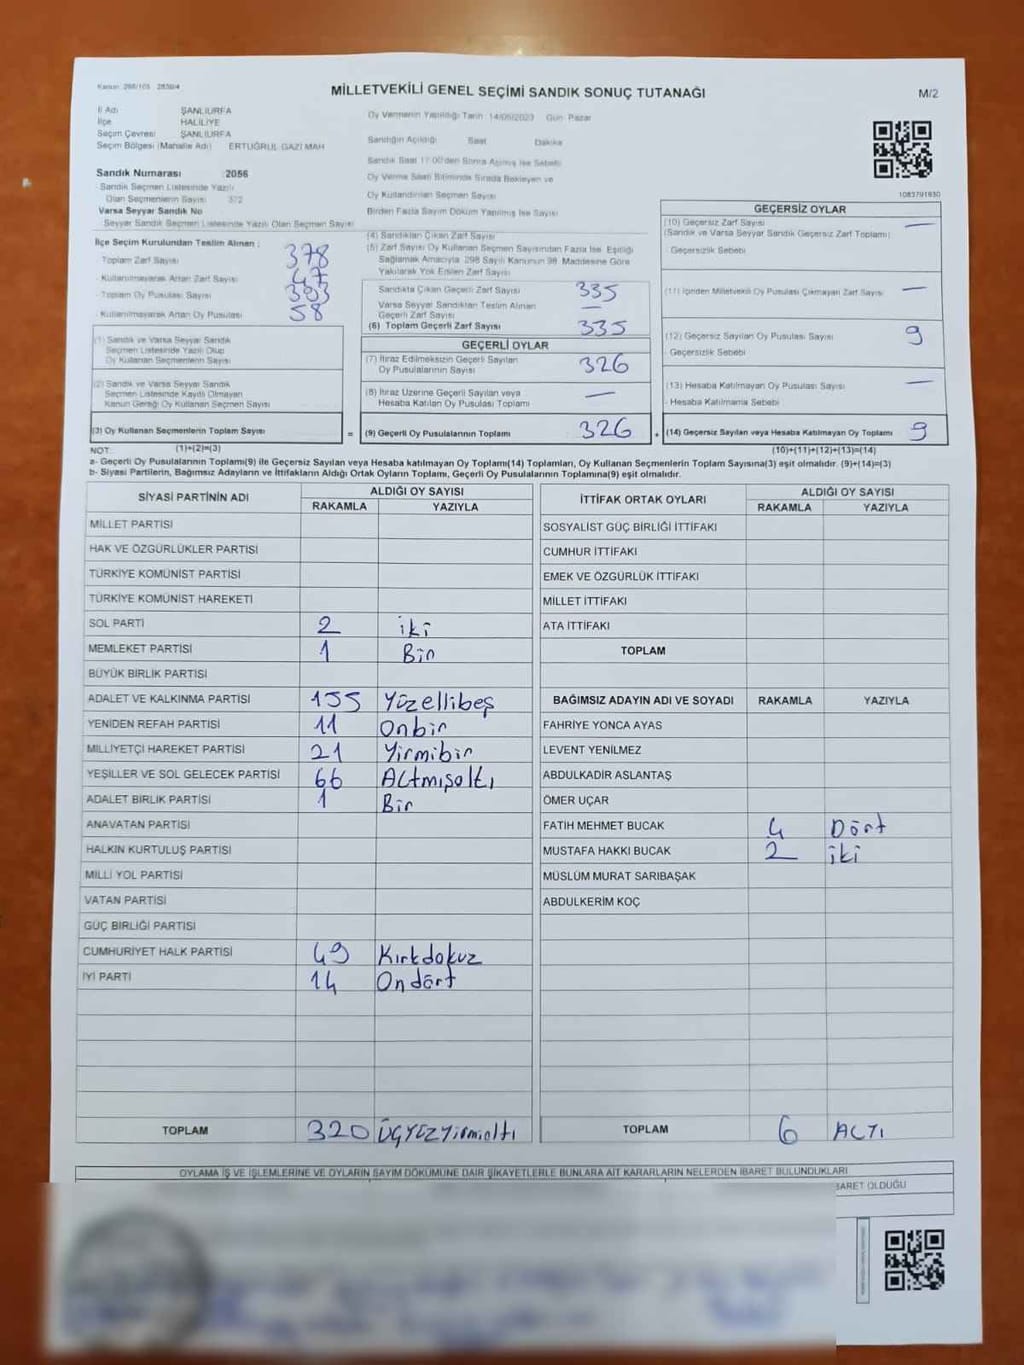 Kanun: 298/105 2839/4
MİLLETVEKİLİ GENEL SEÇİMİ SANDIK SONUÇ TUTANAĞI
M/2
İl Adı ŞANLIURFA
İlçe HALİLİYE
Seçim Çevresi ŞANLIURFA
Seçim Bölgesi (Mahalle Adı) ERTUĞRUL GAZİ MAH
Sandık Numarası 2056
Sandık Seçmen Listesinde Yazılı
Olan Seçmenlerin Sayısı 372
Varsa Seyyar Sandık No
Seyyar Sandık Seçmen Listesinde Yazılı Olan Seçmen Sayısı
Oy Vermenin Yapıldığı Tarih 14/05/2023 Gün Pazar
Sandığın Açıldığı Saat Dakika
Sandık Saat 17:00'den Sonra Açılmış İse Sebebi
Oy Verme Saati Bitiminde Sırada Bekleyen ve
Oy Kullandırılan Seçmen Sayısı
Birden Fazla Sayım Döküm Yapılmış İse Sayısı
1083791930
İlçe Seçim Kurulundan Teslim Alınan ;
- Toplam Zarf Sayısı 378
- Kullanılmayarak Artan Zarf Sayısı 47
- Toplam Oy Pusulası Sayısı
- Kullanılmayarak Artan Oy Pusulası 58
(1) Sandık ve Varsa Seyyar Sandık
Seçmen Listesinde Yazılı Olup
Oy Kullanan Seçmenlerin Sayısı
(2) Sandık ve Varsa Seyyar Sandık
Seçmen Listesinde Kayıtlı Olmayan
Kanun Gereği Oy Kullanan Seçmen Sayısı
(3) Oy Kullanan Seçmenlerin Toplam Sayısı
(4) Sandıktan Çıkan Zarf Sayısı
(5) Zarf Sayısı Oy Kullanan Seçmen Sayısından Fazla İse, Eşitliği
Sağlamak Amacıyla 298 Sayılı Kanunun 98. Maddesine Göre
Yakılarak Yok Edilen Zarf Sayısı
Sandıkta Çıkan Geçerli Zarf Sayısı 335
Varsa Seyyar Sandıktan Teslim Alınan
Geçerli Zarf Sayısı —
(6) Toplam Geçerli Zarf Sayısı 335
GEÇERLİ OYLAR
(7) İtiraz Edilmeksizin Geçerli Sayılan
Oy Pusulalarının Sayısı 326
(8) İtiraz Üzerine Geçerli Sayılan veya
Hesaba Katılan Oy Pusulası Toplamı —
= (9) Geçerli Oy Pusulalarının Toplamı 326
GEÇERSİZ OYLAR
(10) Geçersiz Zarf Sayısı —
(Sandık ve Varsa Seyyar Sandık Geçersiz Zarf Toplamı)
- Geçersizlik Sebebi
(11) İçinden Milletvekili Oy Pusulası Çıkmayan Zarf Sayısı —
(12) Geçersiz Sayılan Oy Pusulası Sayısı 9
- Geçersizlik Sebebi
(13) Hesaba Katılmayan Oy Pusulası Sayısı —
- Hesaba Katılmama Sebebi
(14) Geçersiz Sayılan veya Hesaba Katılmayan Oy Toplamı 9
NOT: (1)+(2)=(3)
(10)+(11)+(12)+(13)=(14)
a- Geçerli Oy Pusulalarının Toplamı(9) ile Geçersiz Sayılan veya Hesaba katılmayan Oy Toplamı(14) Toplamları, Oy Kullanan Seçmenlerin Toplam Sayısına(3) eşit olmalıdır. (9)+(14)=(3)
b- Siyasi Partilerin, Bağımsız Adayların ve İttifakların Aldığı Ortak Oyların Toplamı, Geçerli Oy Pusulalarının Toplamına(9) eşit olmalıdır.
SİYASİ PARTİNİN ADI ALDIĞI OY SAYISI
RAKAMLA YAZIYLA
MİLLET PARTİSİ
HAK VE ÖZGÜRLÜKLER PARTİSİ
TÜRKİYE KOMÜNİST PARTİSİ
TÜRKİYE KOMÜNİST HAREKETİ
SOL PARTİ 2 iki
MEMLEKET PARTİSİ 1 Bir
BÜYÜK BİRLİK PARTİSİ
ADALET VE KALKINMA PARTİSİ 155 Yüzellibeş
YENİDEN REFAH PARTİSİ 11 Onbir
MİLLİYETÇİ HAREKET PARTİSİ 21 Yirmibir
YEŞİLLER VE SOL GELECEK PARTİSİ 66 Altmışaltı
ADALET BİRLİK PARTİSİ 1 Bir
ANAVATAN PARTİSİ
HALKIN KURTULUŞ PARTİSİ
MİLLİ YOL PARTİSİ
VATAN PARTİSİ
GÜÇ BİRLİĞİ PARTİSİ
CUMHURİYET HALK PARTİSİ 49 Kırkdokuz
İYİ PARTİ 14 Ondört
TOPLAM 320 ÜÇYÜZYirmialtı
İTTİFAK ORTAK OYLARI ALDIĞI OY SAYISI
RAKAMLA YAZIYLA
SOSYALİST GÜÇ BİRLİĞİ İTTİFAKI
CUMHUR İTTİFAKI
EMEK VE ÖZGÜRLÜK İTTİFAKI
MİLLET İTTİFAKI
ATA İTTİFAKI
TOPLAM
BAĞIMSIZ ADAYIN ADI VE SOYADI RAKAMLA YAZIYLA
FAHRİYE YONCA AYAS
LEVENT YENİLMEZ
ABDULKADİR ASLANTAŞ
ÖMER UÇAR
FATİH MEHMET BUCAK 4 Dört
MUSTAFA HAKKI BUCAK 2 iki
MÜSLÜM MURAT SARIBAŞAK
ABDULKERİM KOÇ
TOPLAM 6 ALTI
OYLAMA İŞ VE İŞLEMLERİNE VE OYLARIN SAYIM DÖKÜMÜNE DAİR ŞİKAYETLERLE BUNLARA AİT KARARLARIN NELERDEN İBARET BULUNDUKLARI
BARET OLDUĞU